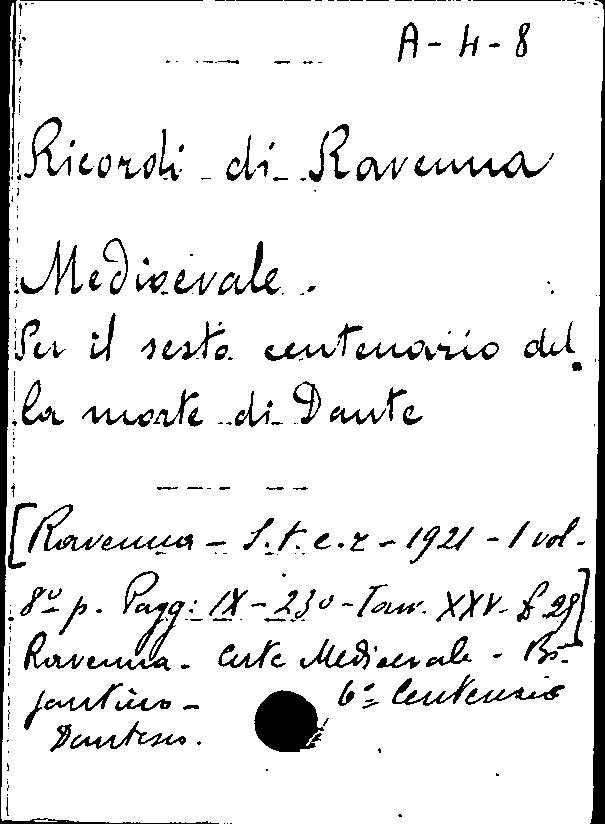 A-4-8
Ricordi di Ravenna
Medioevale.
Per il sesto centenario del
la morte di Dante
[Ravenna - S.t.e.r - 1921 - 1 vol-
8º p. Pagg: IX - 230 - Tavv. XXV-
Ravenna - Arte Medioevale - Bi-
zantino - 6º Centenario
Dantesco.